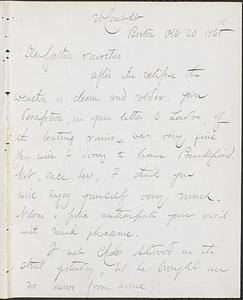 Boston Oct 20 1865
Dear father & mother:
after the eclipse the
weather is clearer and colder. your
description in your letter to
the beating rains, was very fine.
You will be sorry to leave
but, once here, I think you
will enjoy yourself very much.
& Julia anticipate your visit
with much pleasure.
I met Atwood in the
street yesterday, but he brought me
no news from home.